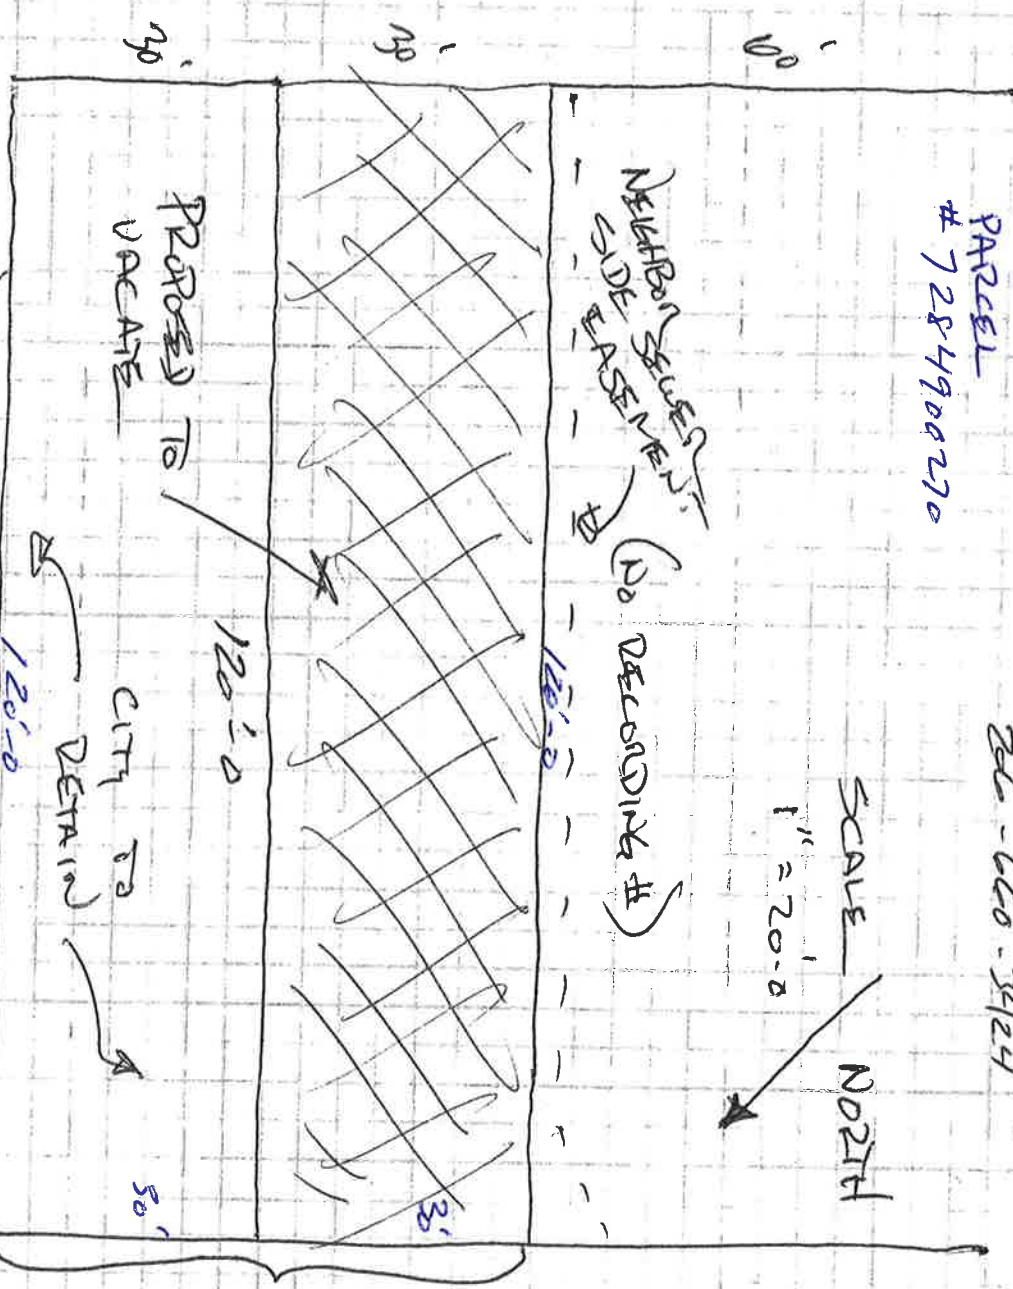 PARCEL
# 7284900270
SCALE
1" = 20'-0
NORTH
60'
NEIGHBOR SEWER
SIDE EASEMENT
(NO RECORDING #)
120'-0
30'
30'
PROPOSED TO
VACATE
120'-0
30'
CITY TO
RETAIN
30'
120'-0